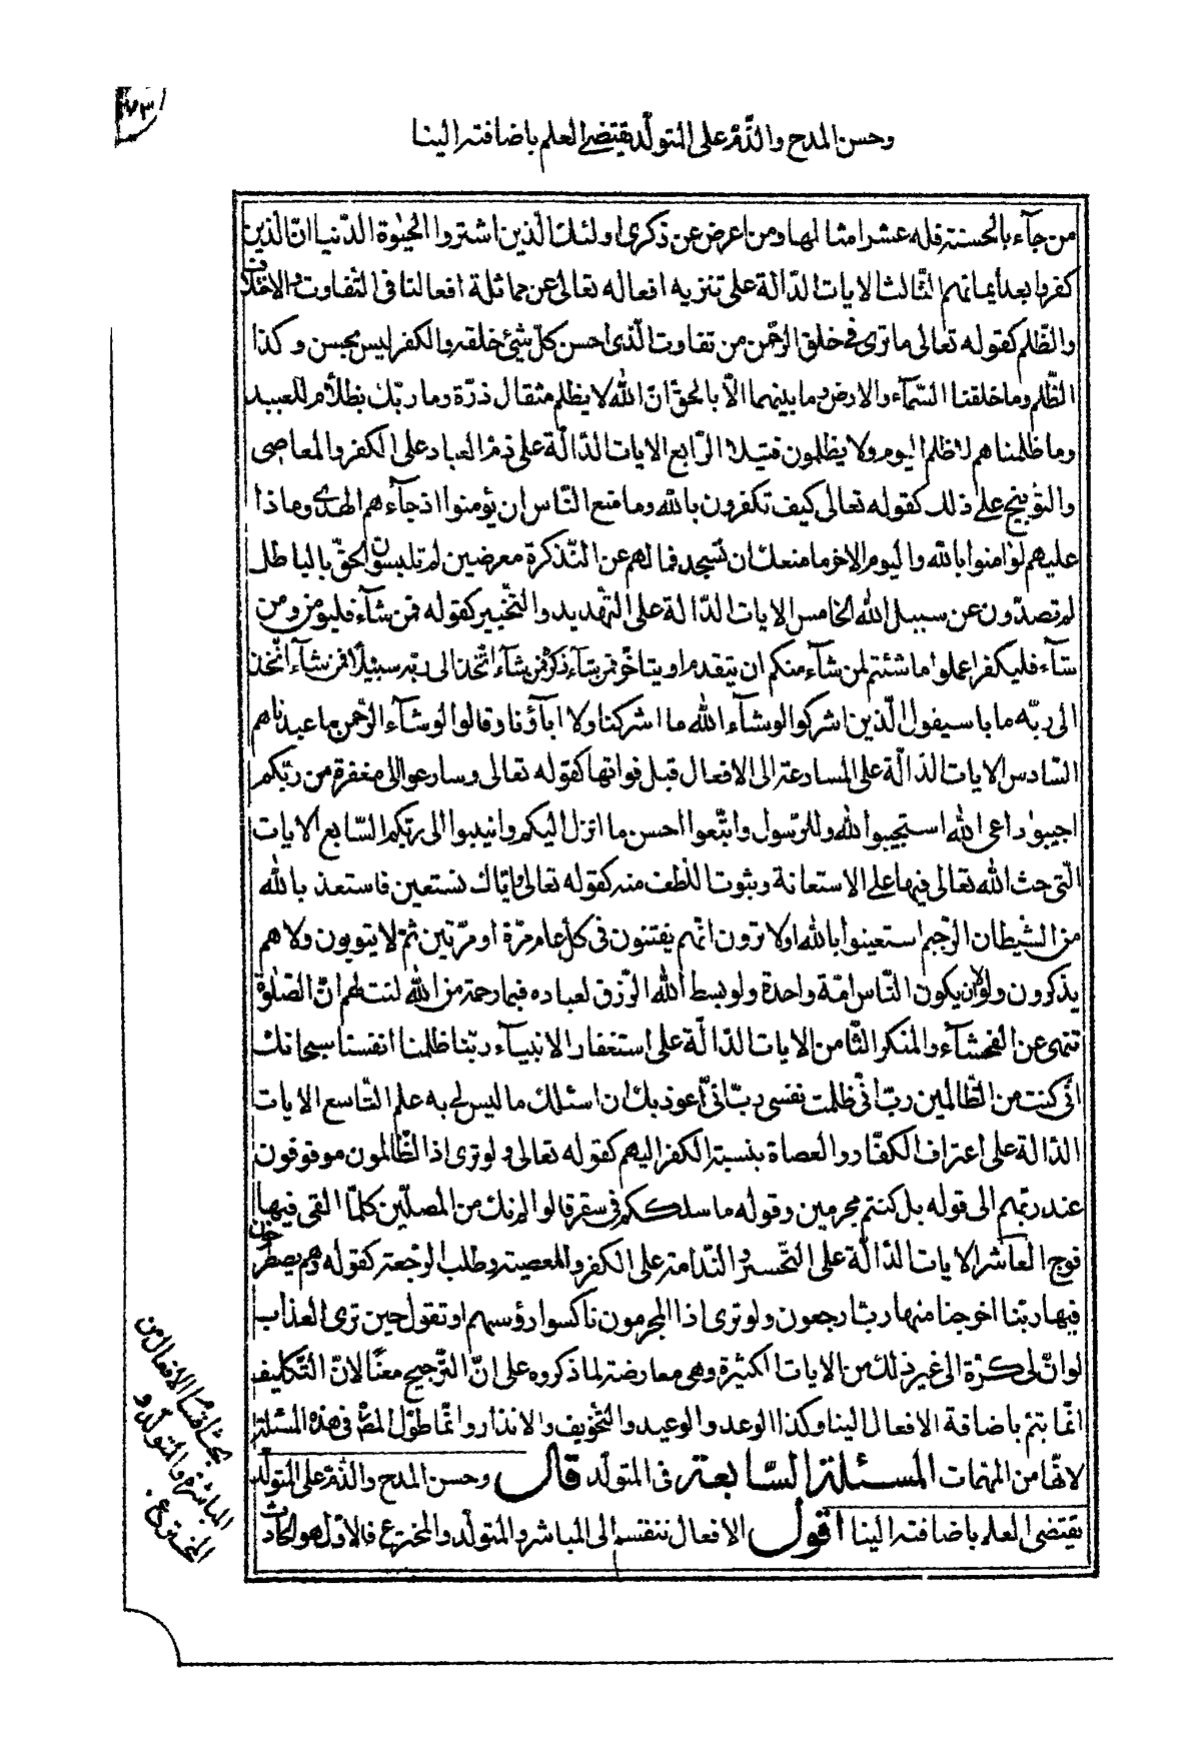 ١٧٣
وحسن المدح والذّمّ على المتولّد يقتضي العلم باضافته الينا
من جآء بالحسنة فله عشر امثالها ومن اعرض عن ذكرى اولئك الّذين اشتروا الحيٰوة الدّنيا انّ الّذين
كفروا بعد أيمانهم الثّالث الايات الدّالة على تنزيه افعاله تعالى عن مماثلة افعالنا فى التّفاوت والاختلاف
والظّلم كقوله تعالى ما ترى في خلق الرّحمن من تفاوت الّذى احسن كلّ شيئ خلقه والكفر ليس بحسن وكذا
الظّلم وما خلقنا السّمآء والارض وما بينهما الّا بالحقّ انّ الله لا يظلم مثقال ذرّة وما ربّك بظلّام للعبيد
وما ظلمناهم لا ظلم اليوم ولا يظلمون فتيلا الرّابع الايات الدّالّة على ذمّ العباد على الكفر والمعاصى
والتوبيخ على ذلك كقوله تعالى كيف تكفرون بالله وما منع النّاس ان يؤمنوا اذ جآءهم الهدى وماذا
عليهم لو امنوا بالله واليوم الاخر ما منعك ان تسجد فما لهم عن التّذكرة معرضين لم تلبسون الحقّ بالباطل
لم تصدّون عن سبيل الله الخامس الايات الدّالة على التّهديد والتّخيير كقوله فمن شآء فليؤمن ومن
شآء فليكفر اعملوا ما شئتم لمن شآء منكم ان يتقدم او يتاخّر فمن شآء ذكره فمن شآء اتّخذ الى ربّه سبيلا فمن شآء اتّخذ
الى ربّه مابا سيقول الّذين اشركوا لو شآء الله ما اشركنا ولا ابآؤنا وقالوا لو شآء الرّحمن ما عبدناهم
السّادس الايات الدّالّة على المسارعة الى الافعال قبل فواتها كقوله تعالى وسارعوا الى مغفرة من ربّكم
اجيبوا داعى الله استجيبوا لله وللرّسول واتّبعوا احسن ما انزل اليكم وانيبوا الى ربّكم السّابع الايات
الّتى حثّ الله تعالى فيها على الاستعانة وثبوت اللّطف منه كقوله تعالى وايّاك نستعين فاستعذ بالله
من الشّيطان الرّجيم استعينوا بالله اولا ترون انّهم يفتنون فى كلّ عام مرّة او مرّتين ثمّ لا يتوبون ولا هم
يذكرون ولولا ان يكون النّاس امّة واحدة ولو بسط الله الرّزق لعباده فبما رحمة من الله لنت لهم انّ الصّلوة
تنهى عن الفحشآء والمنكر الثّامن الايات الدّالّة على استغفار الانبيآء ربّنا ظلمنا انفسنا سبحانك
انّى كنت من الظّالمين ربّ انّى ظلمت نفسى ربّ انّى أعوذ بك ان اسئلك ما ليس لي به علم التّاسع الايات
الدّالة على اعتراف الكفّار والعصاة بنسبة الكفر اليهم كقوله تعالى ولو ترى اذ الظّالمون موقوفون
عند ربّهم الى قوله بل كنتم مجرمين وقوله ما سلككم في سقر قالوا لم نك من المصلّين كلّما القى فيها
فوج العاشر الايات الدّالّة على التّحسّر والنّدامة على الكفر والمعصية وطلب الرّجعة كقوله وهم يصطرخون
فيها ربّنا اخرجنا منها ربّ ارجعون ولو ترى اذ المجرمون ناكسوا رؤسهم او تقول حين ترى العذاب
لو انّ لى كرّة الى غير ذلك من الايات الكثيرة وهى معارضة لما ذكروه على انّ التّرجيح معنا لانّ التّكليف
انّما يتمّ باضافة الافعال الينا وكذا الوعد والوعيد والتّخويف والانذار وانّما طوّل المصّ فى هذه المسئلة
لانّها من المهمّات المسئلة السّابعة فى المتولّد قال وحسن المدح والذّمّ على المتولّد
يقتضى العلم باضافته الينا اقول الافعال تنقسم الى المباشر والمتولّد والمخترع فالاوّل هو الحادث
اقسام الافعال من
المباشر والمتولّد و
المخترع.